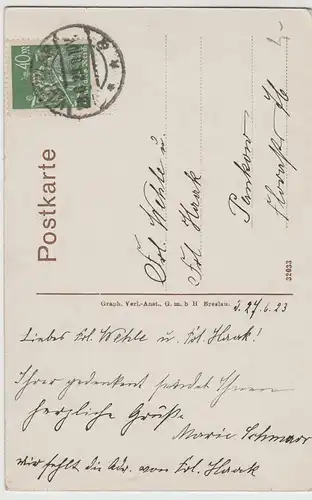 40M
Postkarte
Frl. Wehle u.
Frl. Haak
Pankow
Graph. Verl.-Anst., G. m. b. H. Breslau.
32033
d. 27.6.23
Liebes Frl. Wehle u. Frl. Haak!
Ihrer gedenkend sendet Ihnen
herzliche Grüße
Marie
mir fehlt die Adr. von Frl. Haak